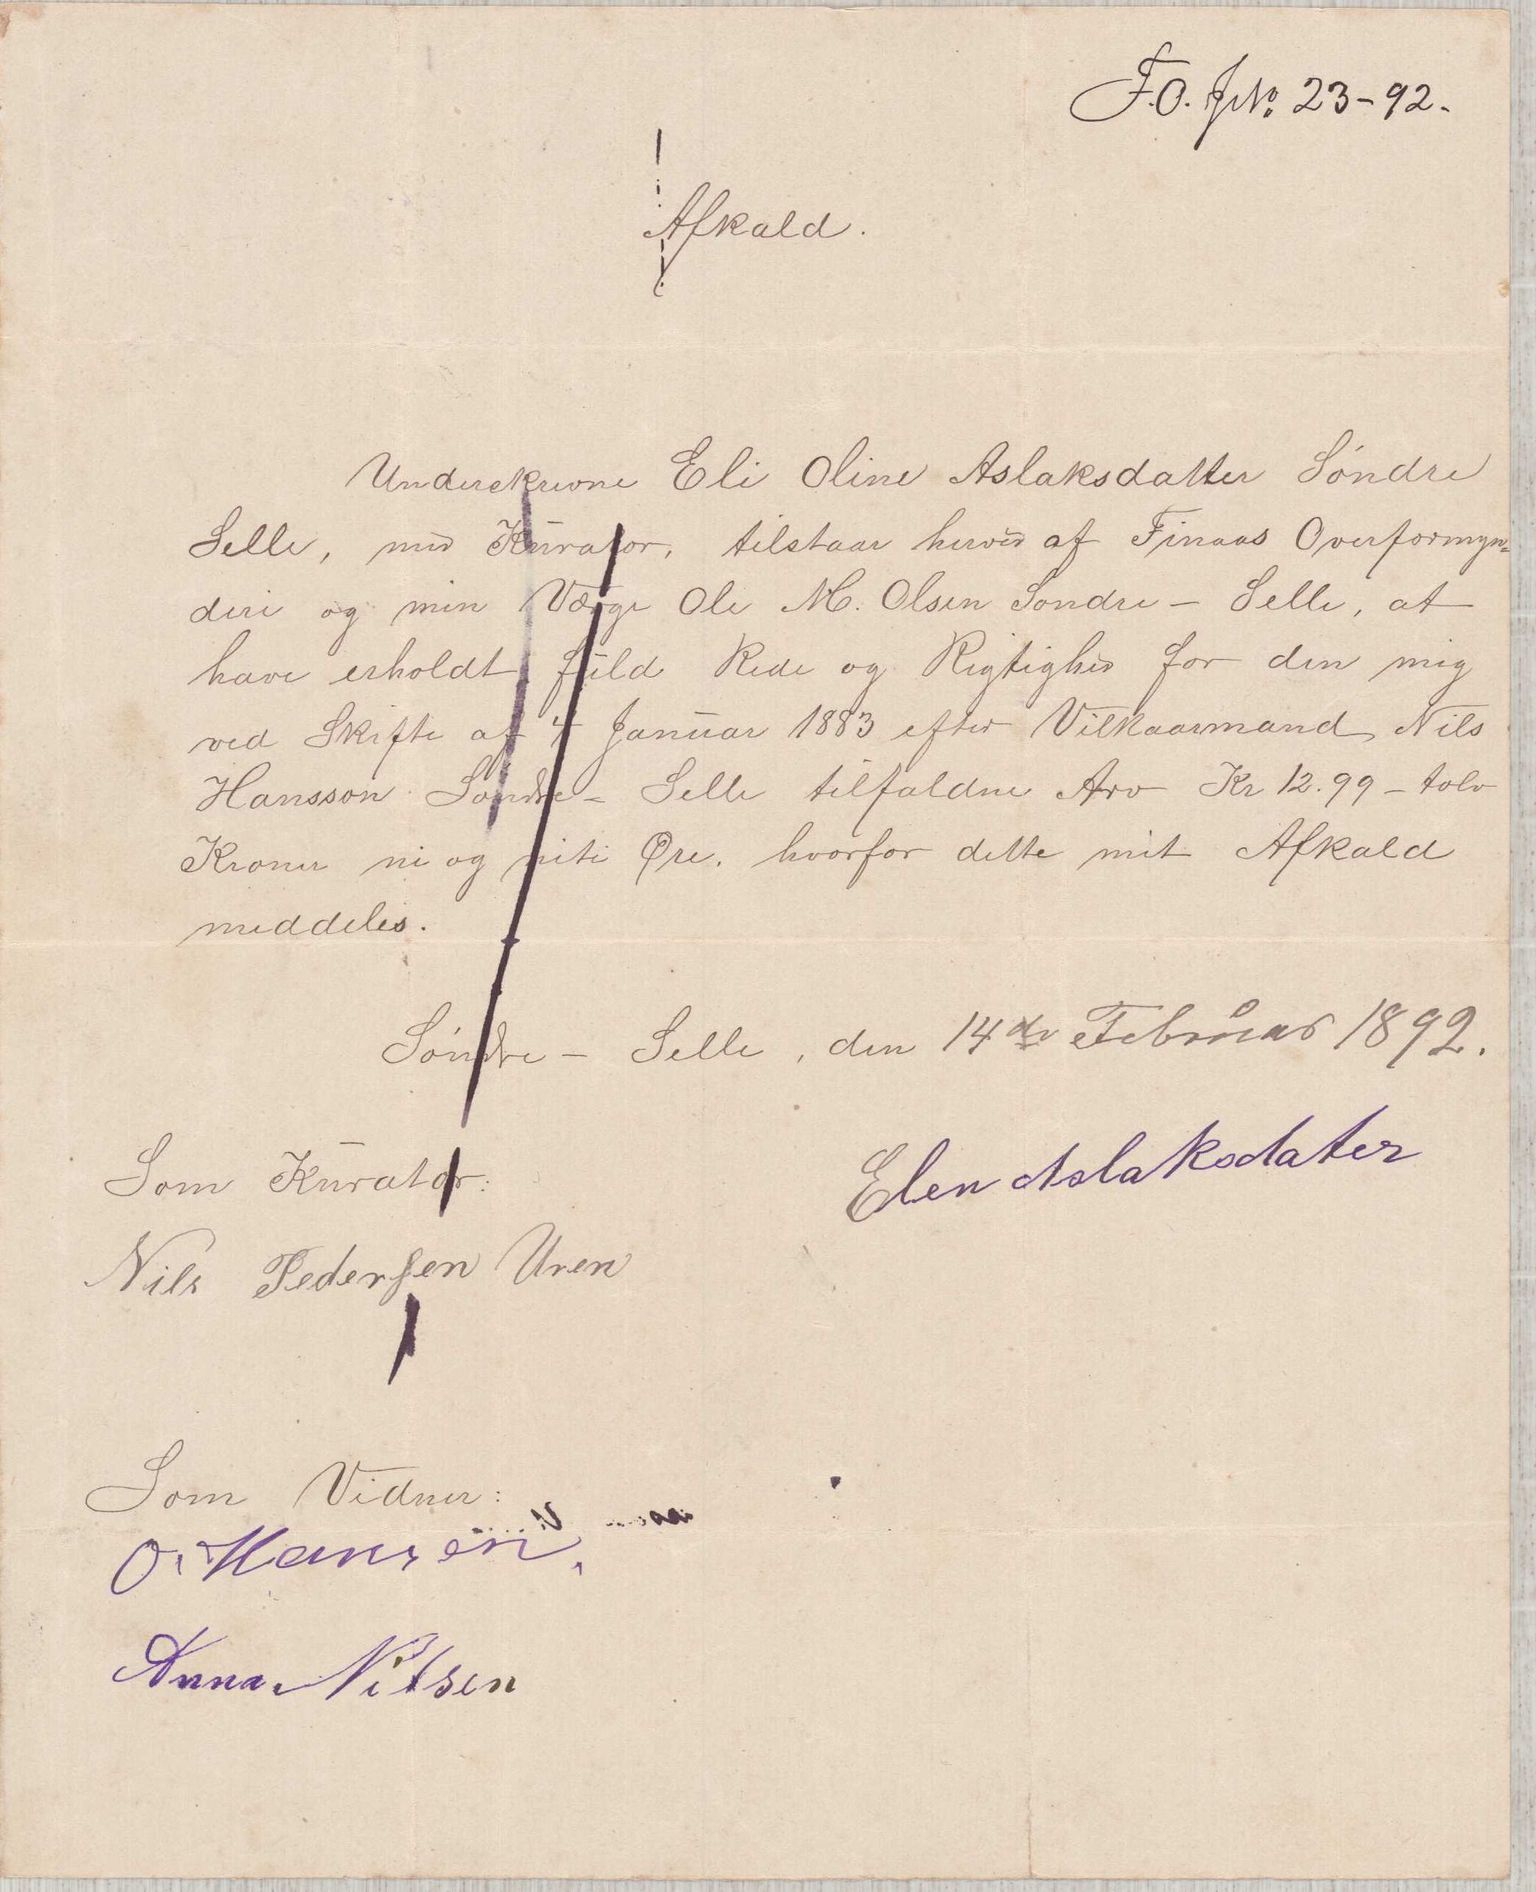 F.O. JNo. 23-92.
Afkald.
Underskrevne Eli Oline Aslaksdatter Søndre
Selle, med Kurator, tilstaar herved af Finaas Overformyn-
deri og min Værge Ole M. Olsen Søndre - Selle, at
have erholdt fuld Rede og Rigtighed for den mig
ved Skifte af 4 Januar 1883 efter Vilkaarmand Nils
Hansson Søndre - Selle tilfaldne Arv Kr 12.99 - tolv
Kroner ni og niti Øre, hvorfor dette mit Afkald
meddeles.
Søndre - Selle, den 14de Februar 1892.
Som Kurator:
Elen Aslaksdater
Nils Pedersen Uren
Som Vidner:
O. Hansen.
Anna Nilsen